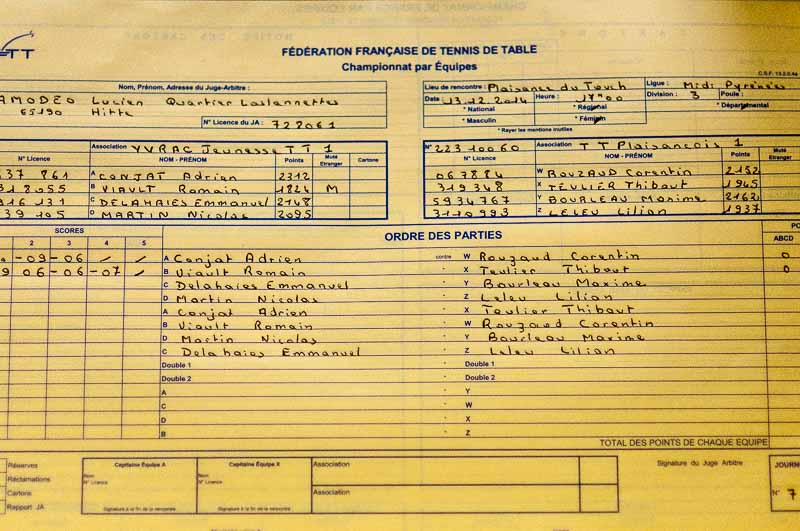 TT
FÉDÉRATION FRANÇAISE DE TENNIS DE TABLE
Championnat par Équipes
C.S.F. 13.2.0.4a
Nom, Prénom, Adresse du Juge-Arbitre :
AMODEO Lucien Quartier Laslannettes
65190 Hitte
N° Licence du JA : 728061
Lieu de rencontre : Plaisance du Touch
Ligue : Midi Pyrénées
Date 13.12.2014 Heure : 17h00 Division : 3 Poule :
* National * Régional * Départemental
* Masculin * Féminin
* Rayer les mentions inutiles
Association YVRAC Jeunesse TT 1
N° Licence NOM - PRÉNOM Points Muté Etranger Carton
637 861 A CONJAT Adrien 2312
318055 B VIAULT Romain 1824 M
16 131 C DELAHAIES Emmanuel 2148
39 105 D MARTIN Nicolas 2095
N° 22310060 Association TT Plaisancois 1
N° Licence NOM - PRÉNOM Points Muté Etranger
067884 W ROUZAUD Corentin 2152
319348 X TEULIER Thibaut 1945
5934767 Y BOURLEAU Maxime 2162
3110993 Z LELEU Lilian 1937
SCORES
2 3 4 5
ORDRE DES PARTIES
PO
ABCD
-09 -06 / / A Conjat Adrien contre W Rouzaud Corentin 0
9 06 -06 -07 / B Viault Romain " X Teulier Thibaut 0
C Delahaies Emmanuel " Y Bourleau Maxime
D Martin Nicolas " Z Leleu Lilian
A Conjat Adrien " X Teulier Thibaut
B Viault Romain " W Rouzaud Corentin
D Martin Nicolas " Y Bourleau Maxime
C Delahaies Emmanuel " Z Leleu Lilian
Double 1 " Double 1
Double 2 " Double 2
A " Y
C " W
D " X
B " Z
TOTAL DES POINTS DE CHAQUE EQUIPE
Réserves
Réclamations
Cartons
Rapport JA
Capitaine Équipe A
Nom
N° Licence
Signature à la fin de la rencontre
Capitaine Équipe X
Nom
N° Licence
Signature à la fin de la rencontre
Association
Association
Signature du Juge Arbitre
JOURN
N° 7